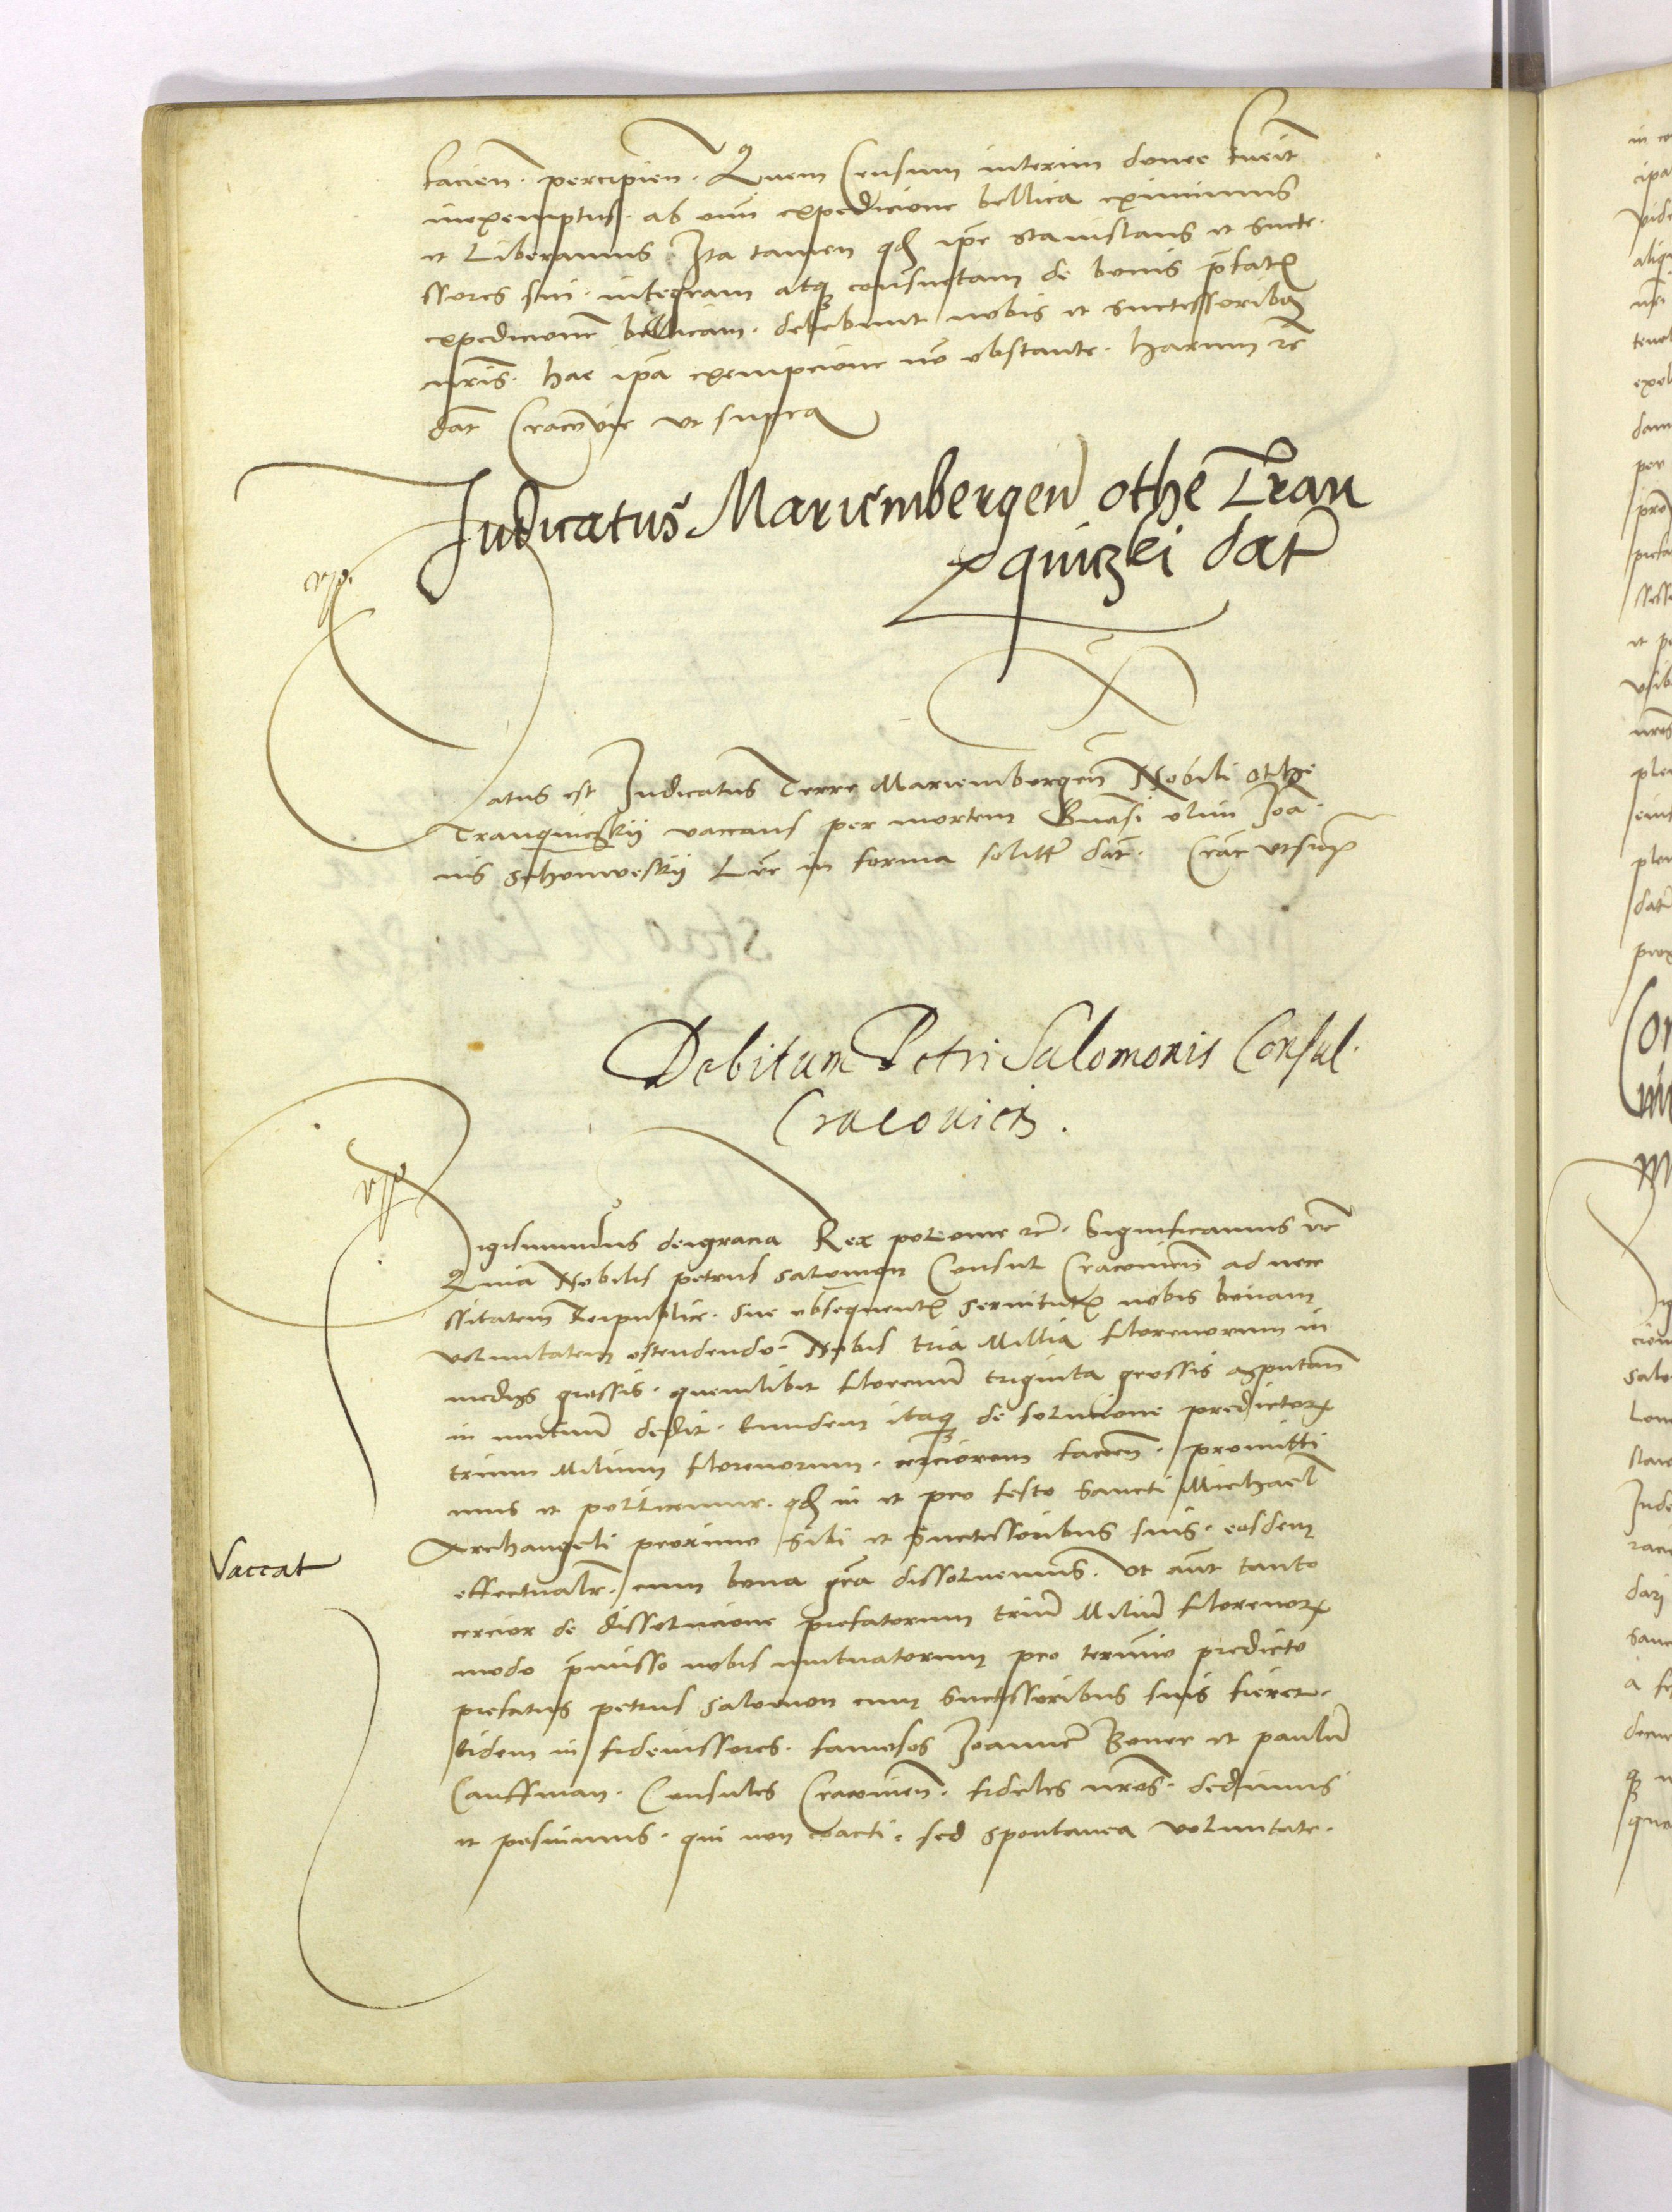 facien. percipien. Quem Censum interim donec fuerit
inexemptus. ab omni expedicione bellica eximimus
et Liberamus Ita tamen qd ipse Stanislaus et Succe
ssores sui. integram atq consuetam de bonis pfatis
expedicionem bellicam. debebunt nobis et Successoribus
nris. hac ipa exempcione no obstante. harum rc
dat Cracovie ut supra
Judicatus Mariembergen othe Tran
quiczki datr
Datus est Judicatus Terre Mariembergen Nobili Othe
Tranquiczkij vaccans per mortem Gnosi olim Joa
nis Schonweskij Lre in forma solita dat. Crac ut sup
Debitum Petri Salomonis Consul.
Cracovien.
vpp
Sigismundus dei gracia Rex polonie rc. Significamus rc
Quia Nobilis petrus Salomon Consul Cracovien ad nece
ssitatem Reipublice. sue obsequentis servitutis nobis bonam
voluntatem ostendendo. Nobis tria Millia florenorum in
medys grossis. quemlibet florenum triginta grossis computan
in mutuum dedit. Eundem itaq de solucione predictor
trium Milium florenorum. cerciorem facien. promitti
mus et pollicemur. qd in et pro festo Sancti Michael
Archangeli proximo sibi et Successoribus suis. eosdem
Vaccat
effectualr. cum bona gra dissolvemus. Ut aut tanto
cercior de dissolucione prefatorum trium Milium florenor
modo pmisso nobis mutuatorum pro termino predicto
prefatus petrus Salomon cum Successoribus suis fieret.
Eidem in fideiussores. famosos Joannem Boner et paulum
Cauffman. Consules Cracovien. fideles nros. dedimus
et posuimus. qui non coacti. sed spontanea voluntate.